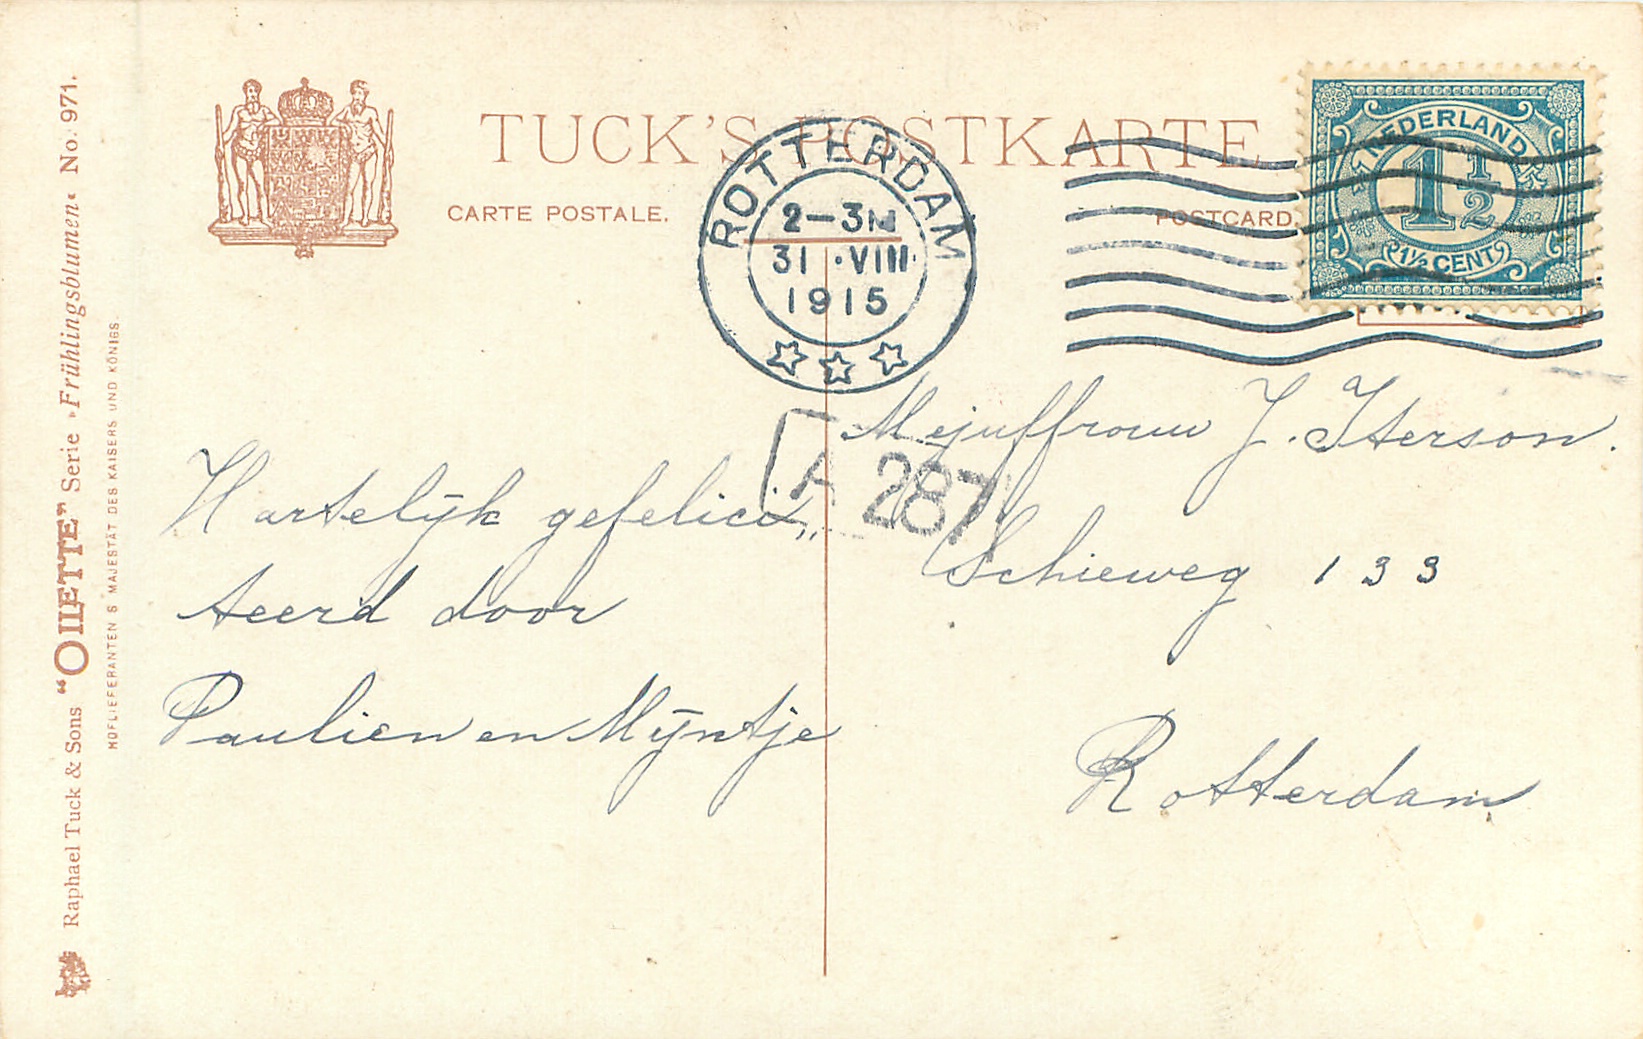 TUCK'S POSTKARTE
CARTE POSTALE.
POSTCARD.
ROTTERDAM
2–3N
31 ·VIII·
1915
NEDERLAND
1 1/2
1½ CENT
A 287
Mejuffrouw J. Iterson.
Schieweg 133
Rotterdam
Hartelijk gefelici„
teerd door
Paulien en Mijntje
Raphael Tuck & Sons "OILETTE" Serie »Frühlingsblumen« No. 971.
HOFLIEFERANTEN S. MAJESTÄT DES KAISERS UND KÖNIGS.